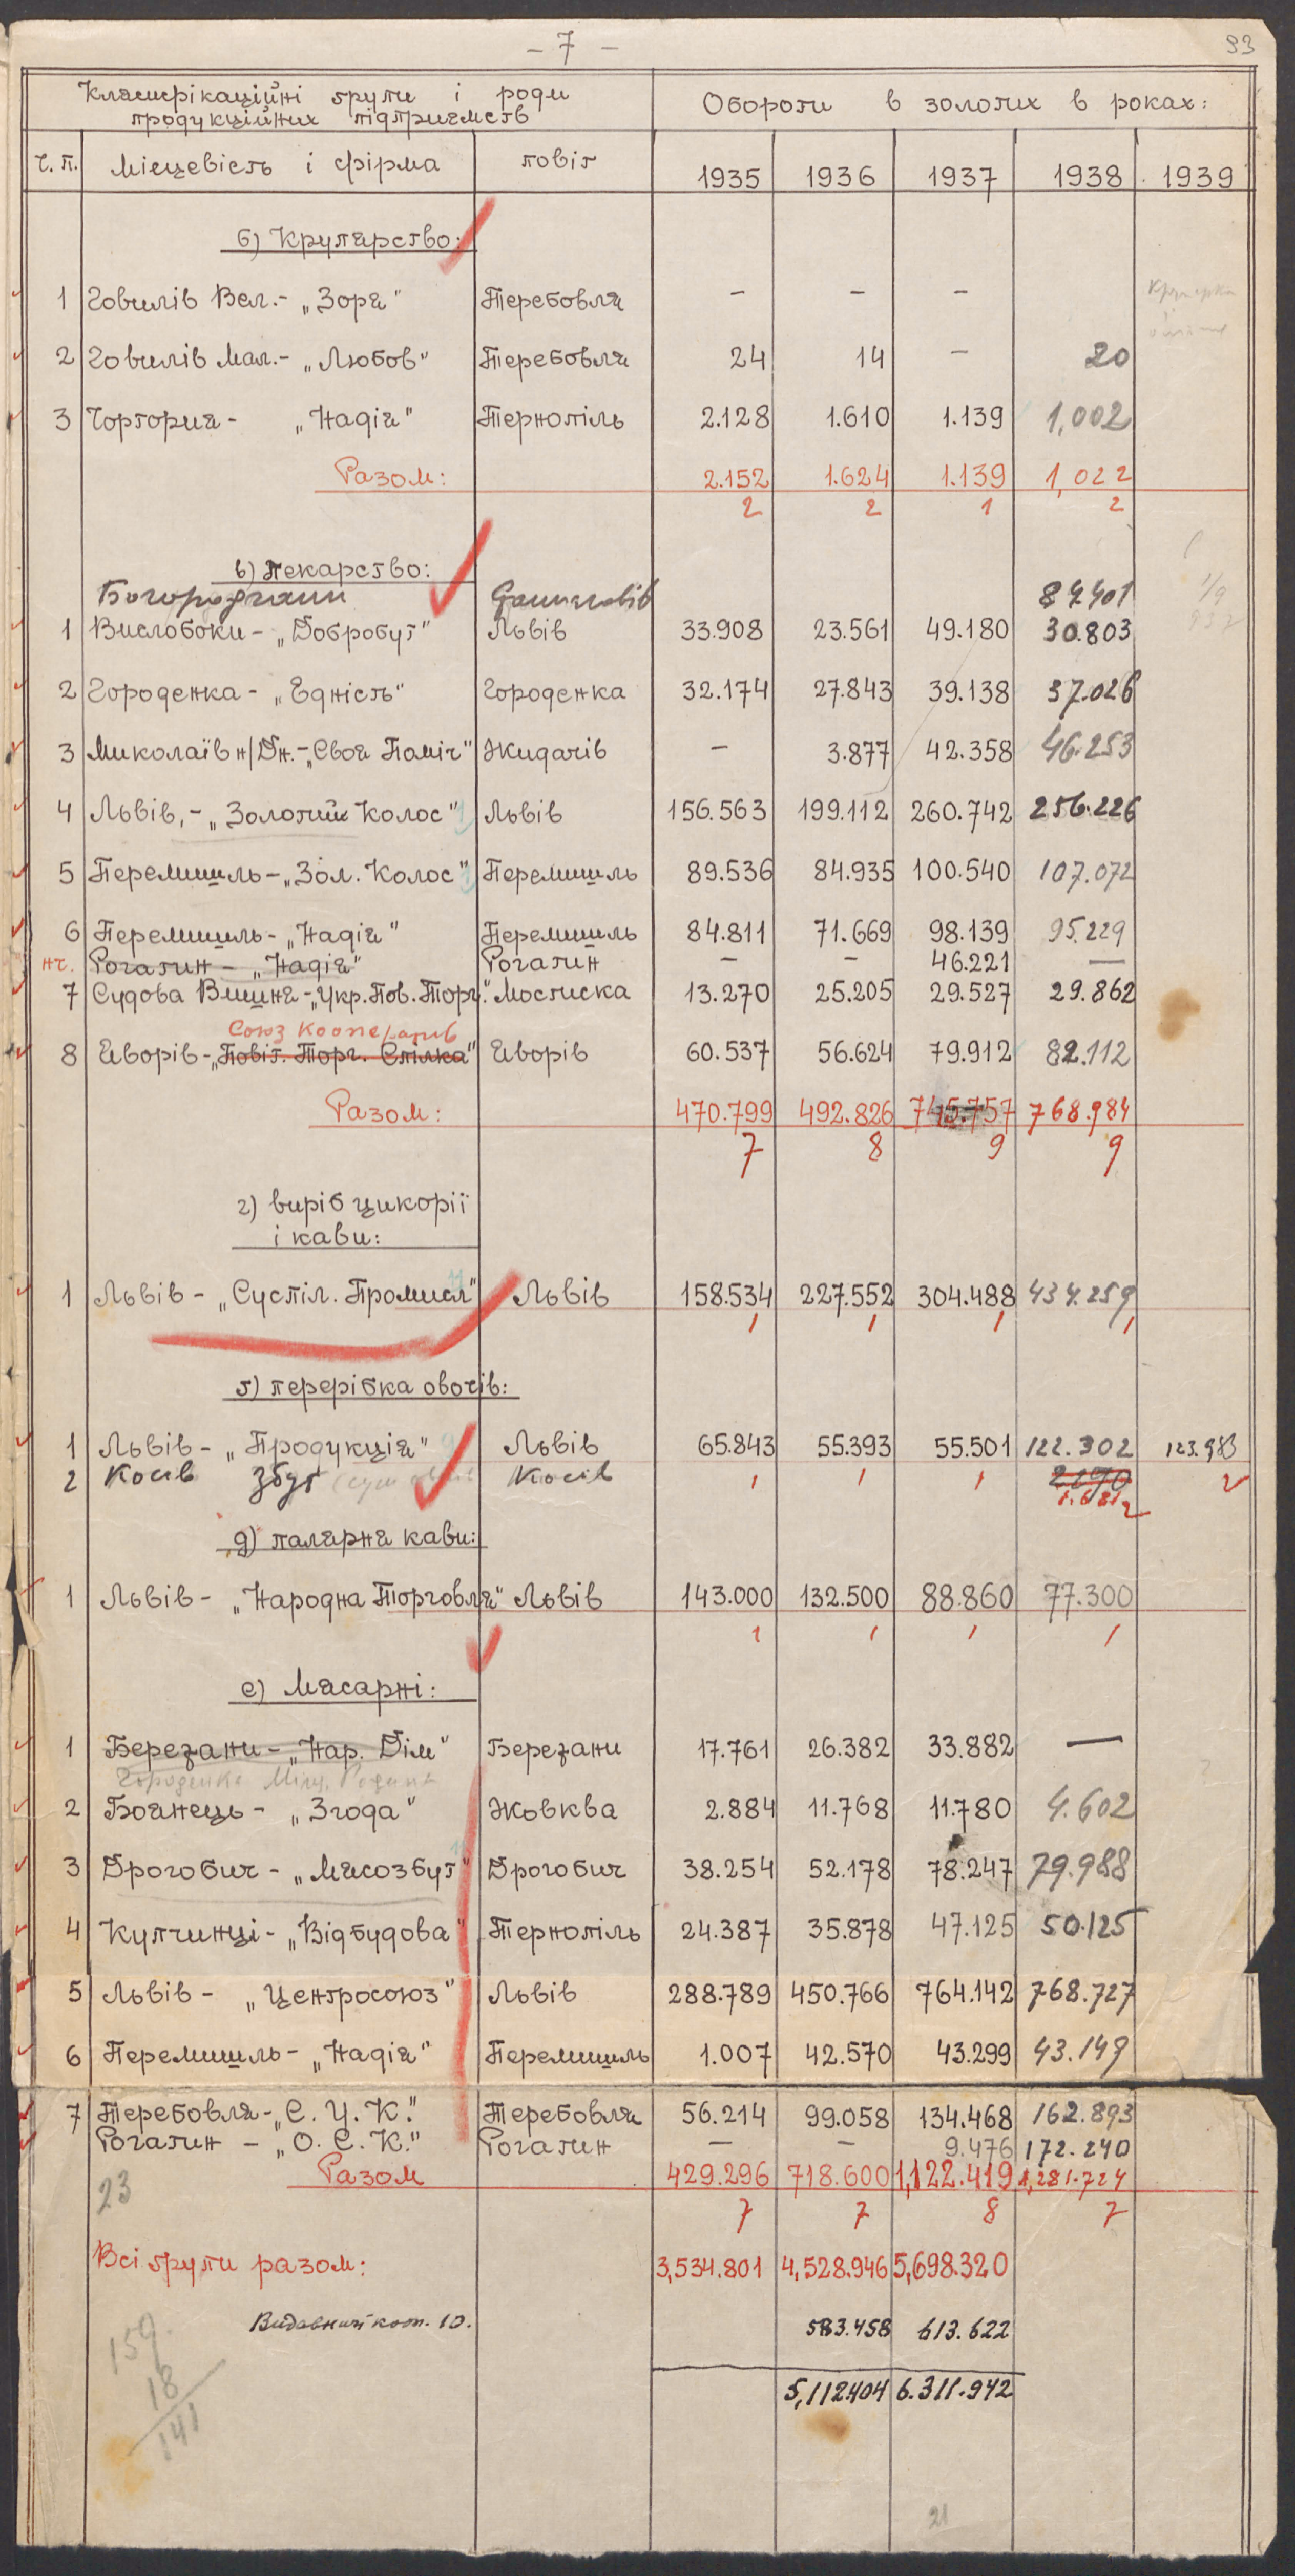 - 7 -
93
Клясифікаційні ґрупи і роди продукційних підприємств
Обороти в золотих в роках:
ч. п. Місцевість і фірма повіт 1935 1936 1937 1938 1939
б) Крупярство:
1 Говилів Вел. - „Зоря" Теребовля - - -
2 Говилів Мал. - „Любов" Теребовля 24 14 - 20
3 Чортория - „Надія" Тернопіль 2.128 1.610 1.139 1,002
Разом: 2.152 1.624 1.139 1,022
2 2 1 2
в) Пекарство:
Богородчани 87.401
1 Вислобоки - „Добробут" Львів 33.908 23.561 49.180 30.803
2 Городенка - „Єдність" Городенка 32.174 27.843 39.138 37.026
3 Миколаїв н/Дн. - „Своя Поміч" Жидачів - 3.877 42.358 46.253
4 Львів, - „Золотий Колос" Львів 156.563 199.112 260.742 256.226
5 Перемишль - „Зол. Колос" Перемишль 89.536 84.935 100.540 107.072
6 Перемишль - „Надія" Перемишль 84.811 71.669 98.139 95.229
нч. Рогатин - „Надія" Рогатин - - 46.221 —
7 Судова Вишня - „Укр. Пов. Торг." Мостиска 13.270 25.205 29.527 29.862
Союз Кооператив
8 Яворів - „Повіт. Торг. Спілка" Яворів 60.537 56.624 79.912 82.112
Разом: 470.799 492.826 745.757 768.984
7 8 9 9
г) виріб цикорії
і кави:
1 Львів - „Суспіл. Промисл" Львів 158.534 227.552 304.488 434.259
1 1 1 1
ґ) перерібка овочів:
1 Львів - „Продукція" Львів 65.843 55.393 55.501 122.302 123.983
2 Косів Збут Косів 1 1 1 2190 2
1.681 2
д) палярня кави:
1 Львів - „Народна Торговля" Львів 143.000 132.500 88.860 77.300
1 1 1 1
е) Масарні:
1 Бережани - „Нар. Дім" Бережани 17.761 26.382 33.882 —
Городенка
2 Боянець - „Згода" Жовква 2.884 11.768 11.780 4.602
3 Дрогобич - „Мясозбут" Дрогобич 38.254 52.178 78.247 79.988
4 Купчинці - „Відбудова" Тернопіль 24.387 35.878 47.125 50.125
5 Львів - „Центросоюз" Львів 288.789 450.766 764.142 768.727
6 Перемишль - „Надія" Перемишль 1.007 42.570 43.299 43.149
7 Теребовля - „С. У. К." Теребовля 56.214 99.058 134.468 162.893
Рогатин - „О. С. К." Рогатин - - 9.476 172.240
Разом 429.296 718.600 1,122.419 1,281.724
23 7 7 8 7
Всі ґрупи разом: 3,534.801 4,528.946 5,698.320
Видавничі кооп. 10. 583.458 613.622
159
18
141
5,112404 6.311.942
21